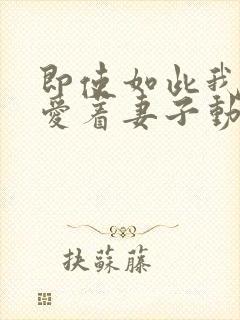 即使如此我
愛着妻子動
抉蘇藤